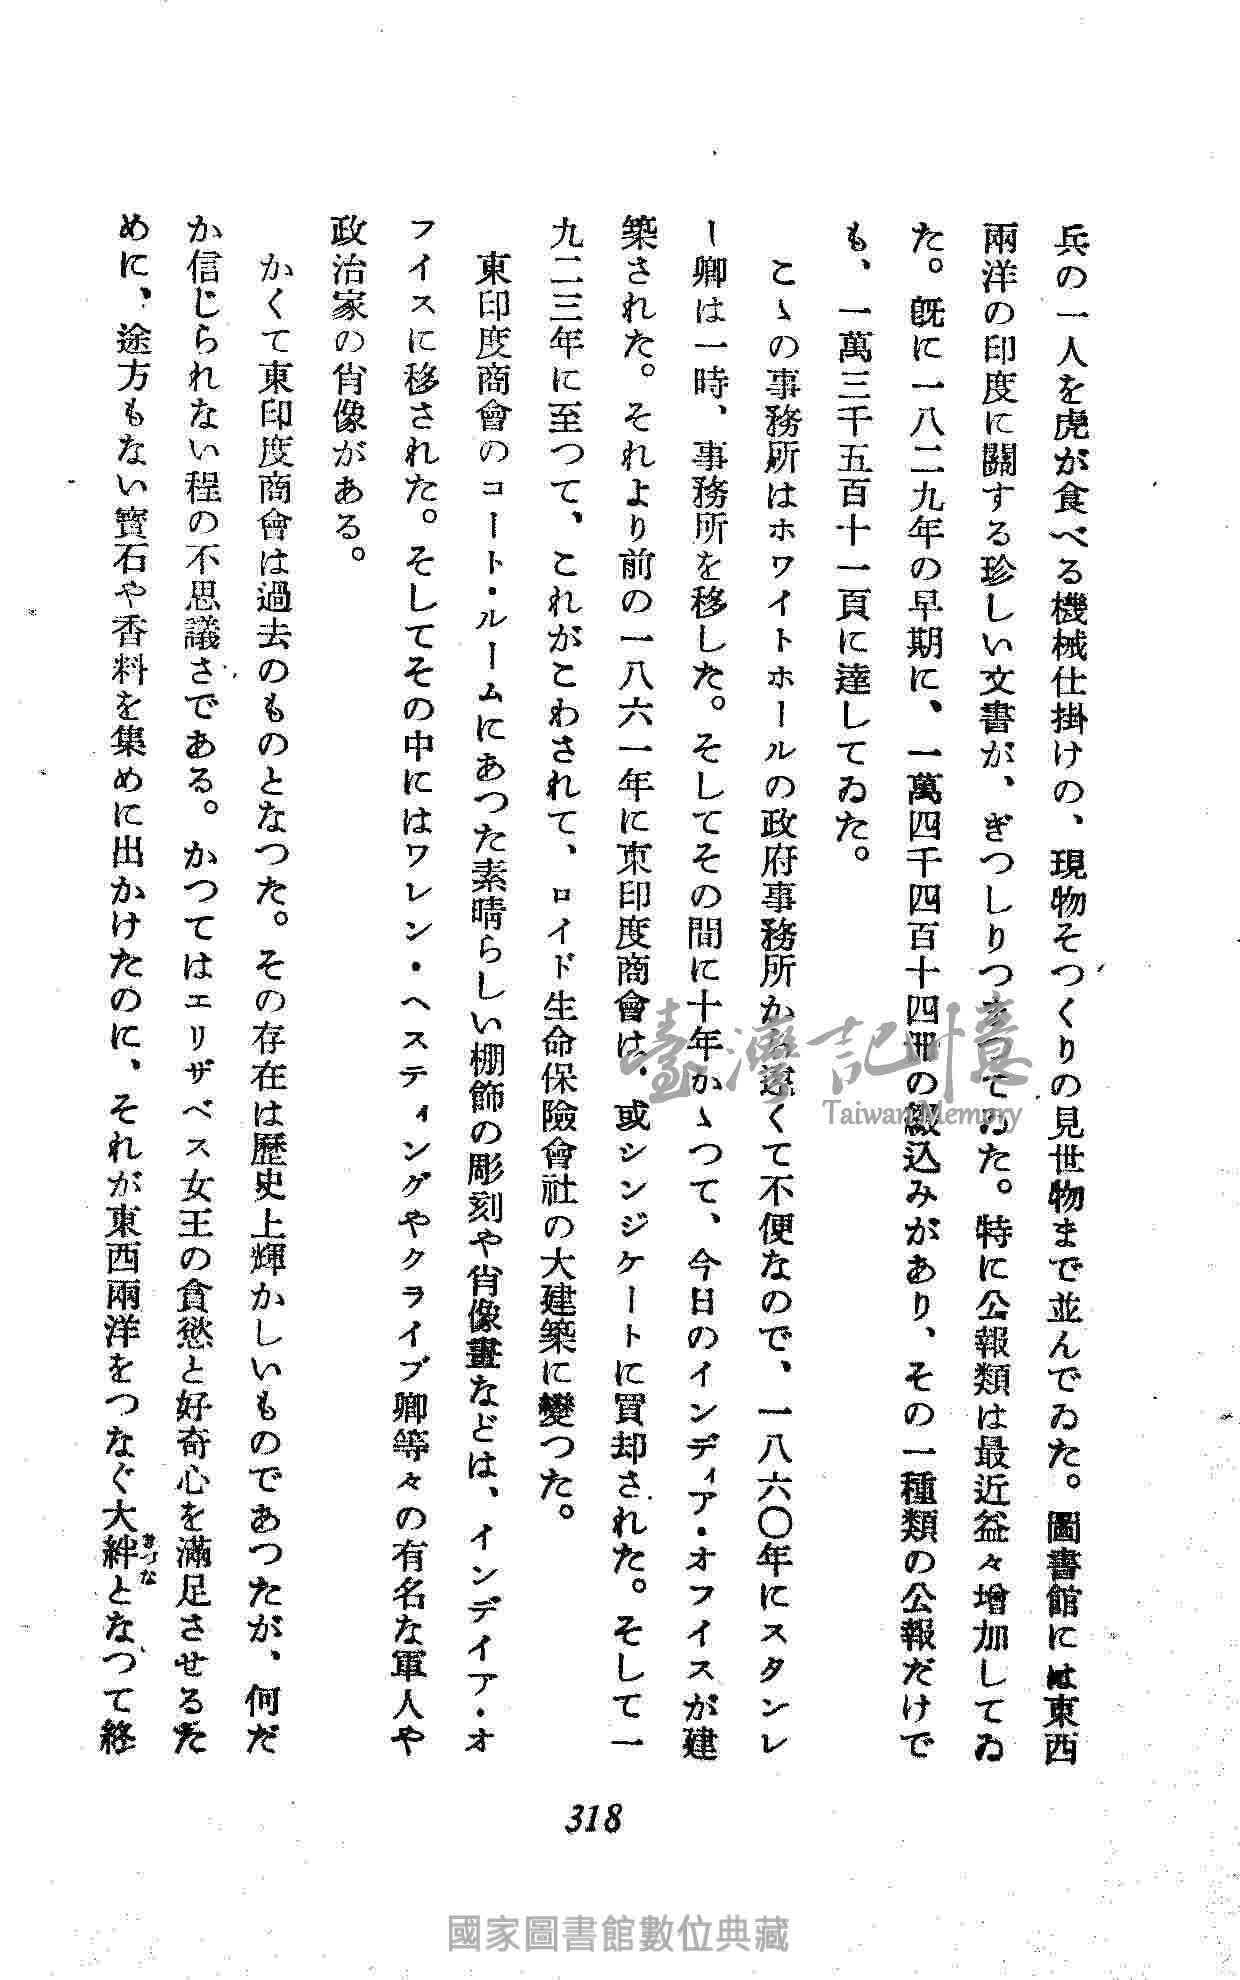 兵の一人を虎が食べる機械仕掛けの、現物そつくりの見世物まで並んでゐた。圖書館には東西
兩洋の印度に關する珍しい文書が、ぎつしりつまつてゐた。特に公報類は最近益々增加してゐ
た。既に一八二九年の早期に、一萬四千四百十四冊の綴込みがあり、その一種類の公報だけで
も、一萬三千五百十一頁に達してゐた。
こゝの事務所はホワイトホールの政府事務所から遠くて不便なので、一八六〇年にスタンレ
ー卿は一時、事務所を移した。そしてその間に十年かゝつて、今日のインディア・オフイスが建
築された。それより前の一八六一年に東印度商會は、或シンジケートに買却された。そして一
九二三年に至つて、これがこわされて、ロイド生命保險會社の大建築に變つた。
東印度商會のコート・ルームにあつた素晴らしい棚飾の彫刻や肖像畫などは、インデイア・オ
フイスに移された。そしてその中にはワレン・ヘスティングやクライブ卿等々の有名な軍人や
政治家の肖像がある。
かくて東印度商會は過去のものとなつた。その存在は歷史上輝かしいものであつたが、何だ
か信じられない程の不思議さである。かつてはエリザベス女王の貪慾と好奇心を滿足させるた
めに、途方もない寶石や香料を集めに出かけたのに、それが東西兩洋をつなぐ大絆となつて終
きづな
318
臺灣記憶
Taiwan Memory
國家圖書館數位典藏